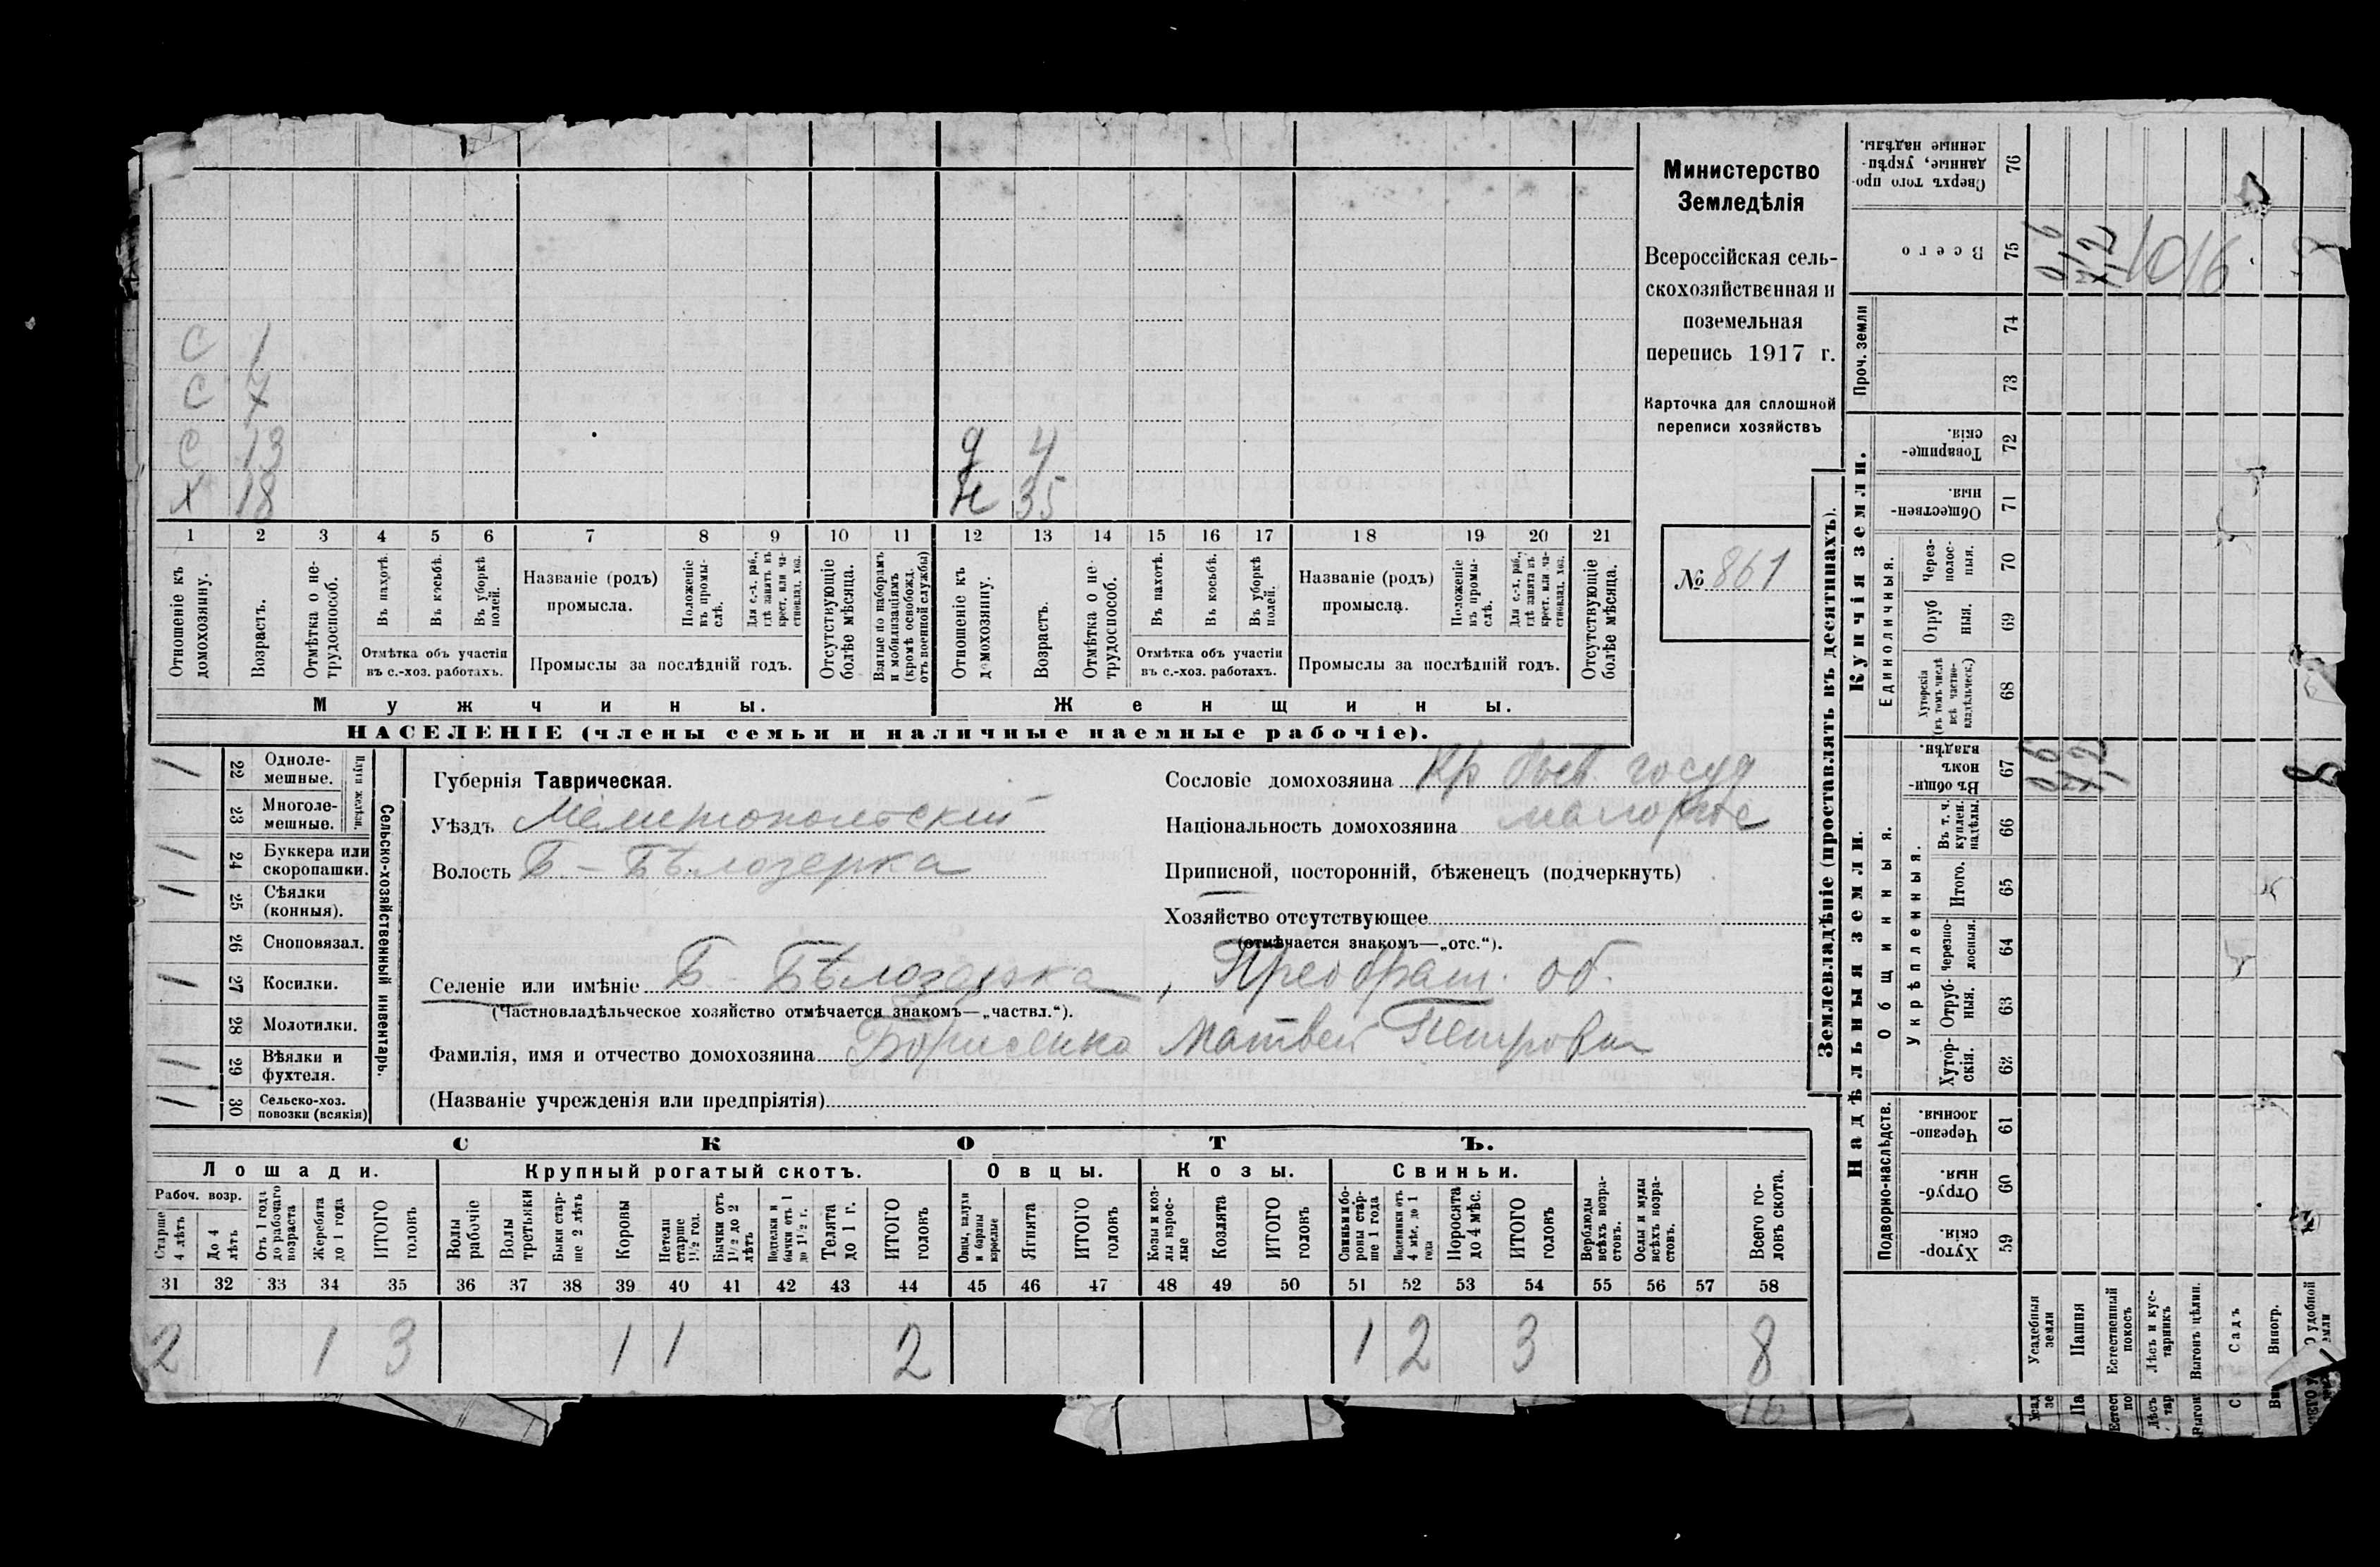 С 1
С 7
С 13
Х 18
д 4
Ж 35
1 2 3 4 5 6 7 8 9 10 11 12 13 14 15 16 17 18 19 20 21
Отношеніе къ домохозяину.
Возрастъ.
Отмѣтка о не-трудоспособ.
Въ пахотѣ.
Въ косьбѣ.
Въ уборкѣ полей.
Отмѣтка объ участіи
въ с.-хоз. работахъ.
Названіе (родъ)
промысла.
Положеніе въ промы-слѣ.
Для с.-х. раб., гдѣ занятъ въ крест. или ча-стновлад. хоз.
Промыслы за послѣдній годъ.
Отсутствующіе болѣе мѣсяца.
Взятые по наборамъ и мобилизаціямъ (кромѣ освобожд. отъ военной службы)
Отношеніе къ домохозяину.
Возрастъ.
Отмѣтка о не-трудоспособ.
Въ пахотѣ.
Въ косьбѣ.
Въ уборкѣ полей.
Отмѣтка объ участіи
въ с.-хоз. работахъ.
Названіе (родъ)
промысла.
Положеніе въ промы-слѣ.
Для с.-х. раб., гдѣ занята въ крест. или ча-стновлад. хоз.
Промыслы за послѣдній годъ.
Отсутствующіе болѣе мѣсяца.
Мужчины.
Женщины.
НАСЕЛЕНІЕ (члены семьи и наличные наемные рабочіе).
Министерство
Земледѣлія
Всероссійская сель-
скохозяйственная и
поземельная
перепись 1917 г.
Карточка для сплошной
переписи хозяйствъ
№ 861
Сельско-хозяйственный инвентарь.
Плуги желѣзн.
1 22 Одноле-мешные.
23 Многоле-мешные.
1 24 Буккера или скоропашки.
1 25 Сѣялки (конныя).
26 Сноповязал.
1 27 Косилки.
28 Молотилки.
1 29 Вѣялки и фухтеля.
1 30 Сельско-хоз. повозки (всякія)
Губернія Таврическая.
Уѣздъ Мелитопольскій
Волость Б-Бѣлозерка
Сословіе домохозяина Кр быв. госуд
Національность домохозяина малорос
Приписной, посторонній, бѣженецъ (подчеркнуть)
Хозяйство отсутствующее
(отмѣчается знакомъ—„отс.“).
Селеніе или имѣніе Б-Бѣлозерка, Преображ. об.
(Частновладѣльческое хозяйство отмѣчается знакомъ—„частвл.“).
Фамилія, имя и отчество домохозяина Борисенко Матвей Петрович
(Названіе учрежденія или предпріятія)
СКОТЪ.
Лошади.
Крупный рогатый скотъ.
Овцы.
Козы.
Свиньи.
Рабоч. возр.
Старше 4 лѣтъ
До 4 лѣтъ
Отъ 1 года до рабочаго возраста
Жеребята до 1 года
ИТОГО головъ
Волы рабочіе
Волы третьяки
Быки стар-ше 2 лѣтъ
Коровы
Нетели старше 1½ год.
Бычки отъ 1½ до 2 лѣтъ
Подтелки и бычки отъ 1 до 1½ г.
Телята до 1 г.
ИТОГО головъ
Овцы, валухи и бараны взрослые
Ягнята
ИТОГО головъ
Козы и коз-лы взрос-лые
Козлята
ИТОГО головъ
Свиньи и бо-ровы стар-ше 1 года
Подсвинки отъ 4 мѣс. до 1 года
Поросята до 4 мѣс.
ИТОГО головъ
Верблюды всѣхъ возра-стовъ.
Ослы и мулы всѣхъ возра-стовъ.
Всего го-ловъ скота.
31 32 33 34 35 36 37 38 39 40 41 42 43 44 45 46 47 48 49 50 51 52 53 54 55 56 57 58
2 1 3 1 1 2 1 2 3 8
Землевладѣніе (проставлять въ десятинахъ).
Купчія земли.
Надѣльныя земли.
Проч. земли
Единоличныя.
Общинныя.
Укрѣпленныя.
Подворно-наслѣдств.
Сверхъ того про-данные, укрѣп-ленные надѣлы. 76
Всего 75
74
73
Товарище-скія. 72
Обществен-ныя. 71
Через-полос-ныя. 70
Отруб ныя. 69
Хуторскія (въ томъ числѣ всѣ частно-владѣльческ.) 68
Въ общи-номъ владѣн. 67
Въ т. ч. куплен. надѣлы. 66
Итого. 65
Черезпо-лосныя. 64
Отруб-ныя. 63
Хутор-скія. 62
Черезпо-лосныя. 61
Отруб-ныя. 60
Хутор-скія. 59
Усадебныя земли
Пашня
Естественный покосъ
Лѣсъ и кус-тарникъ
Выгонъ цѣлин.
Садъ
Виногр.
удобной